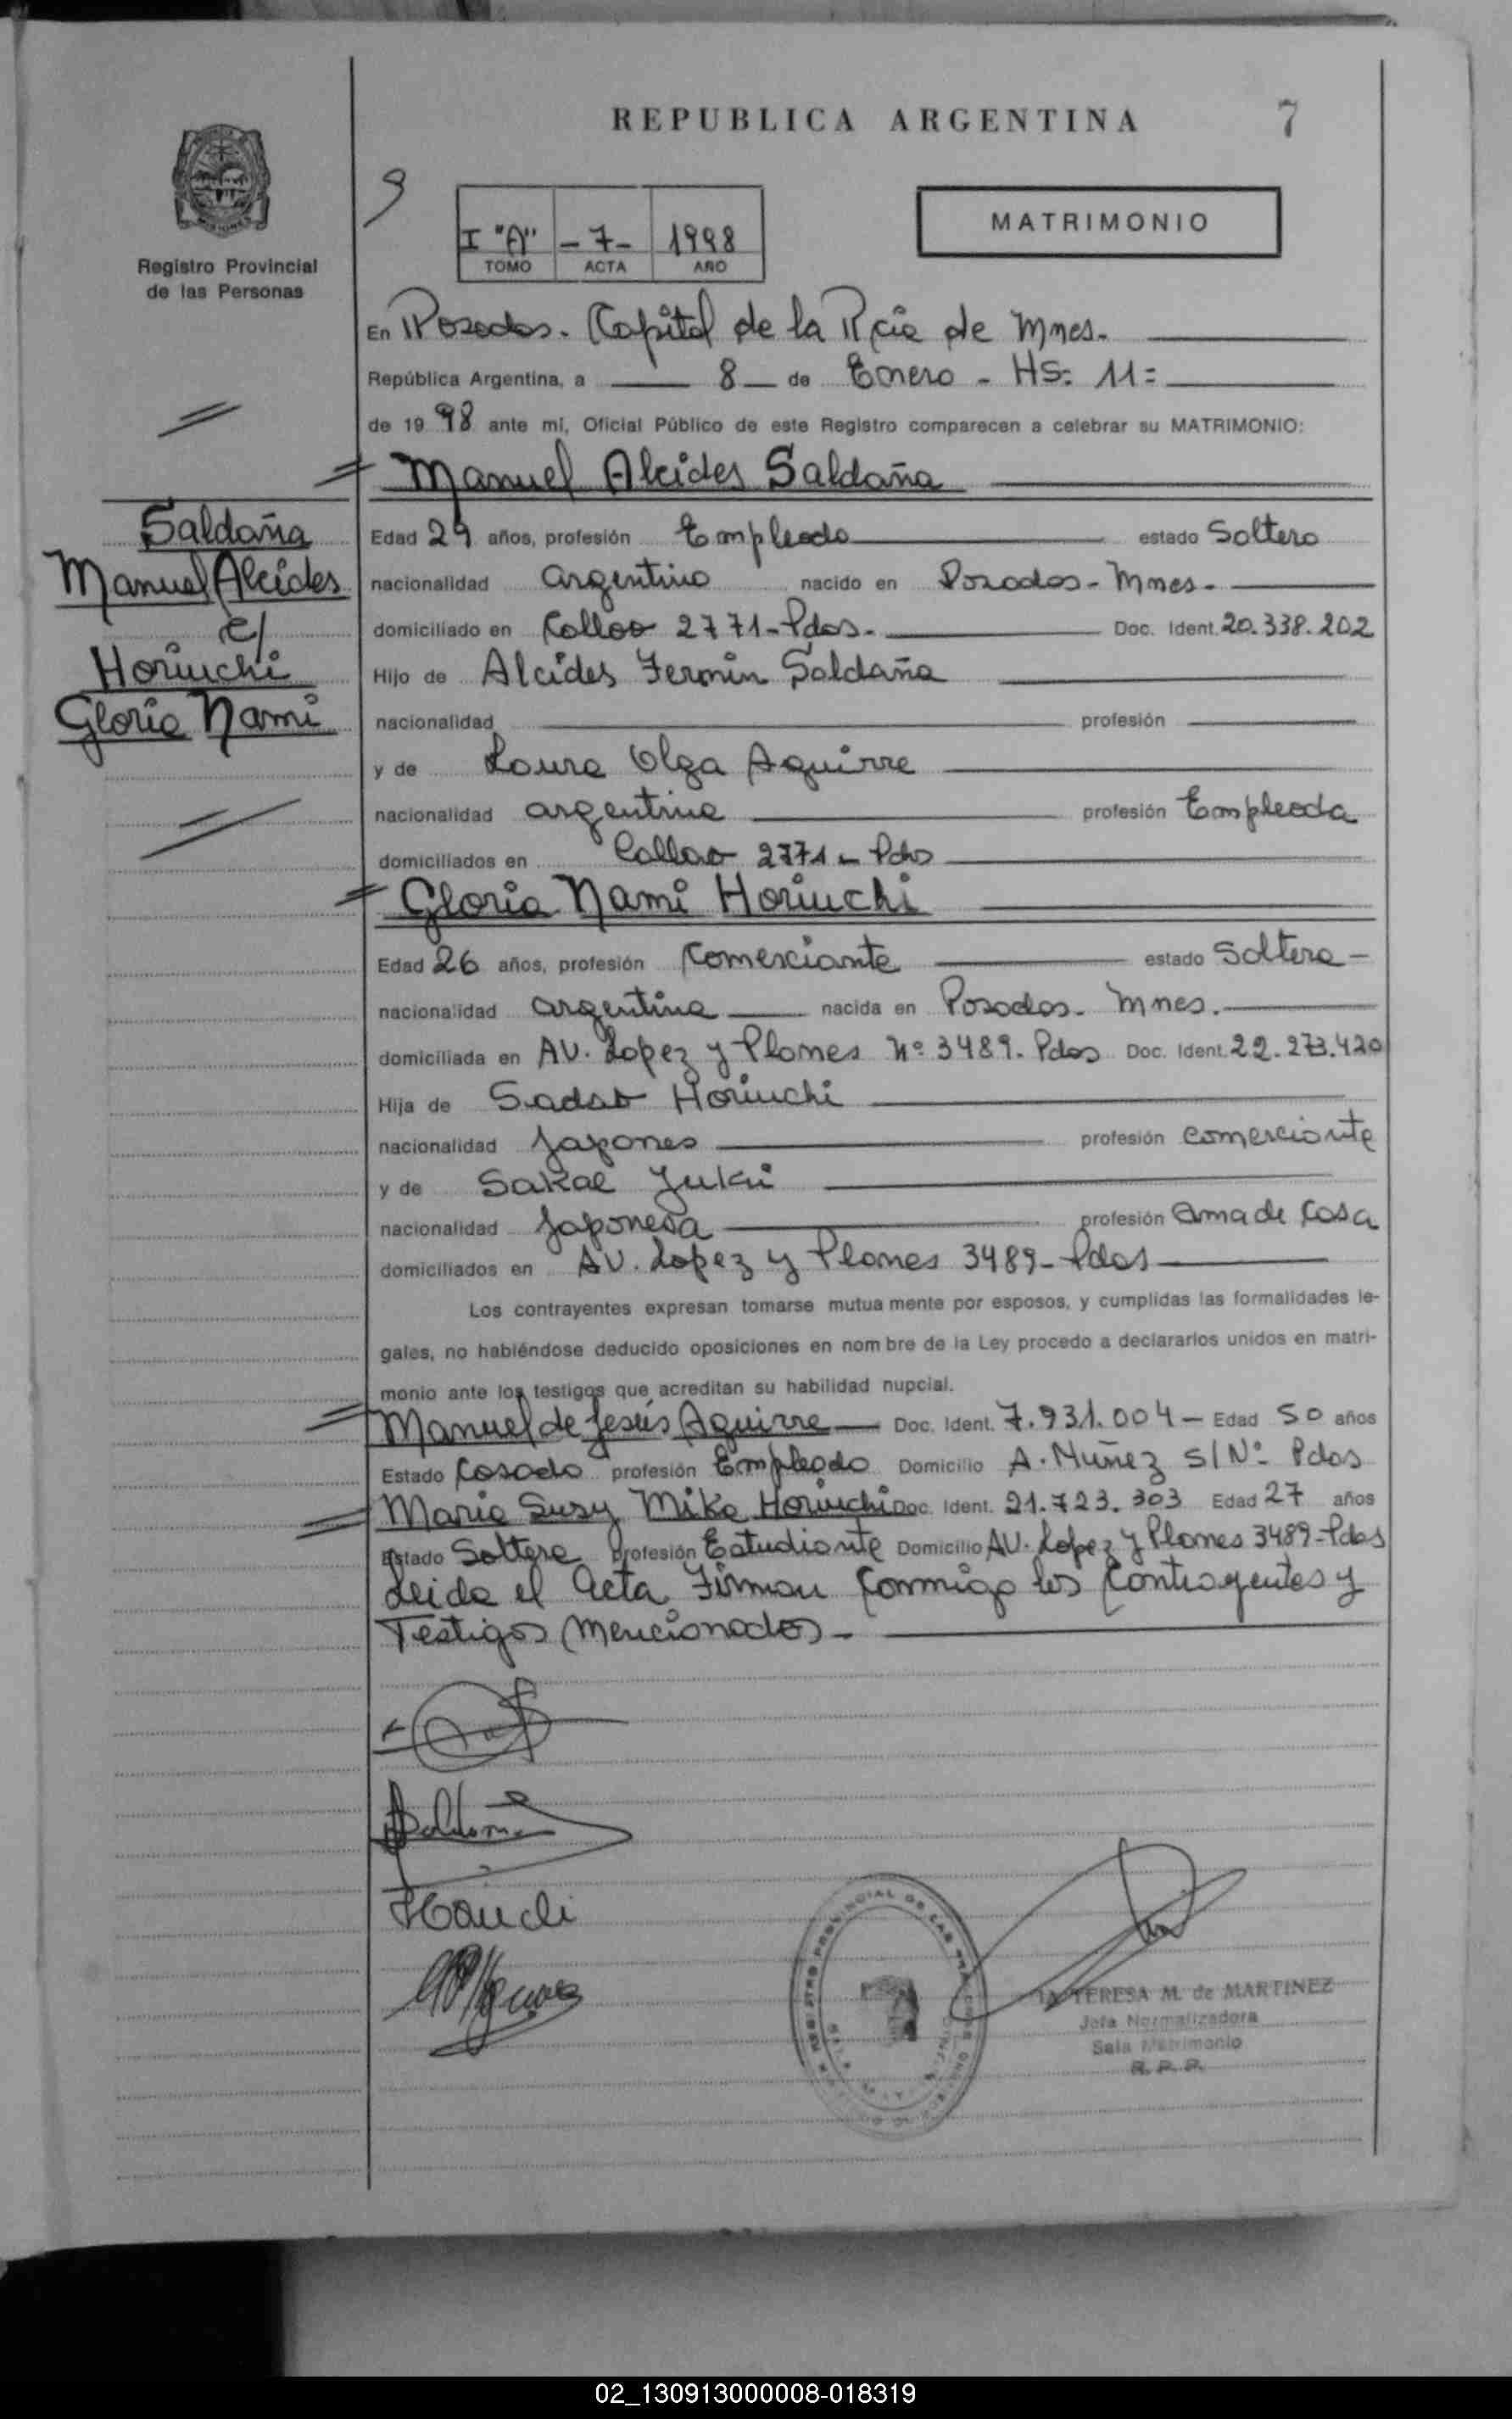 REPUBLICA ARGENTINA
7
9
I "A" -7- 1998
TOMO ACTA AÑO
MATRIMONIO
Registro Provincial
de las Personas
En Posadas. Capital de la Pcia de Mnes.
República Argentina, a 8 de Enero - HS: 11=
de 19 98 ante mí, Oficial Público de este Registro comparecen a celebrar su MATRIMONIO:
Manuel Alcides Saldaña
Saldaña
Manuel Alcides
c/
Horiuchi
Gloria Nami
Edad 29 años, profesión Empleado estado Soltero
nacionalidad argentino nacido en Posadas - Mnes.
domiciliado en Collao 2771-Pdas. Doc. Ident. 20.338.202
Hijo de Alcides Fermin Saldaña
nacionalidad profesión
y de Laura Olga Aguirre
nacionalidad argentina profesión Empleada
domiciliados en Collao 2771 - Pdas
Gloria Nami Horiuchi
Edad 26 años, profesión Comerciante estado Soltera -
nacionalidad argentina nacida en Posadas. Mnes.
domiciliada en AV. Lopez y Planes Nº 3489. Pdas Doc. Ident. 22.273.420
Hija de Sadao Horiuchi
nacionalidad Japones profesión Comerciante
y de Sakae Yuki
nacionalidad Japonesa profesión ama de Casa
domiciliados en AV. Lopez y Planes 3489- Pdas
Los contrayentes expresan tomarse mutua mente por esposos, y cumplidas las formalidades le-
gales, no habiéndose deducido oposiciones en nom bre de la Ley procedo a declararlos unidos en matri-
monio ante los testigos que acreditan su habilidad nupcial.
Manuel de Jesús Aguirre Doc. Ident. 7.931.004 - Edad 50 años
Estado Casado profesión Empleado Domicilio A. Nuñez S/Nº Pdas
Maria Susy Mika Horiuchi Doc. Ident. 21.723.303 Edad 27 años
Estado Soltera profesión Estudiante Domicilio AV. Lopez y Planes 3489-Pdas
Leida el Acta Firman Conmigo los Contrayentes y
Testigos Mencionados.
TERESA M. de MARTINEZ
Jefa Normalizadora
Sala Matrimonio
R. P. P.
02_130913000008-018319